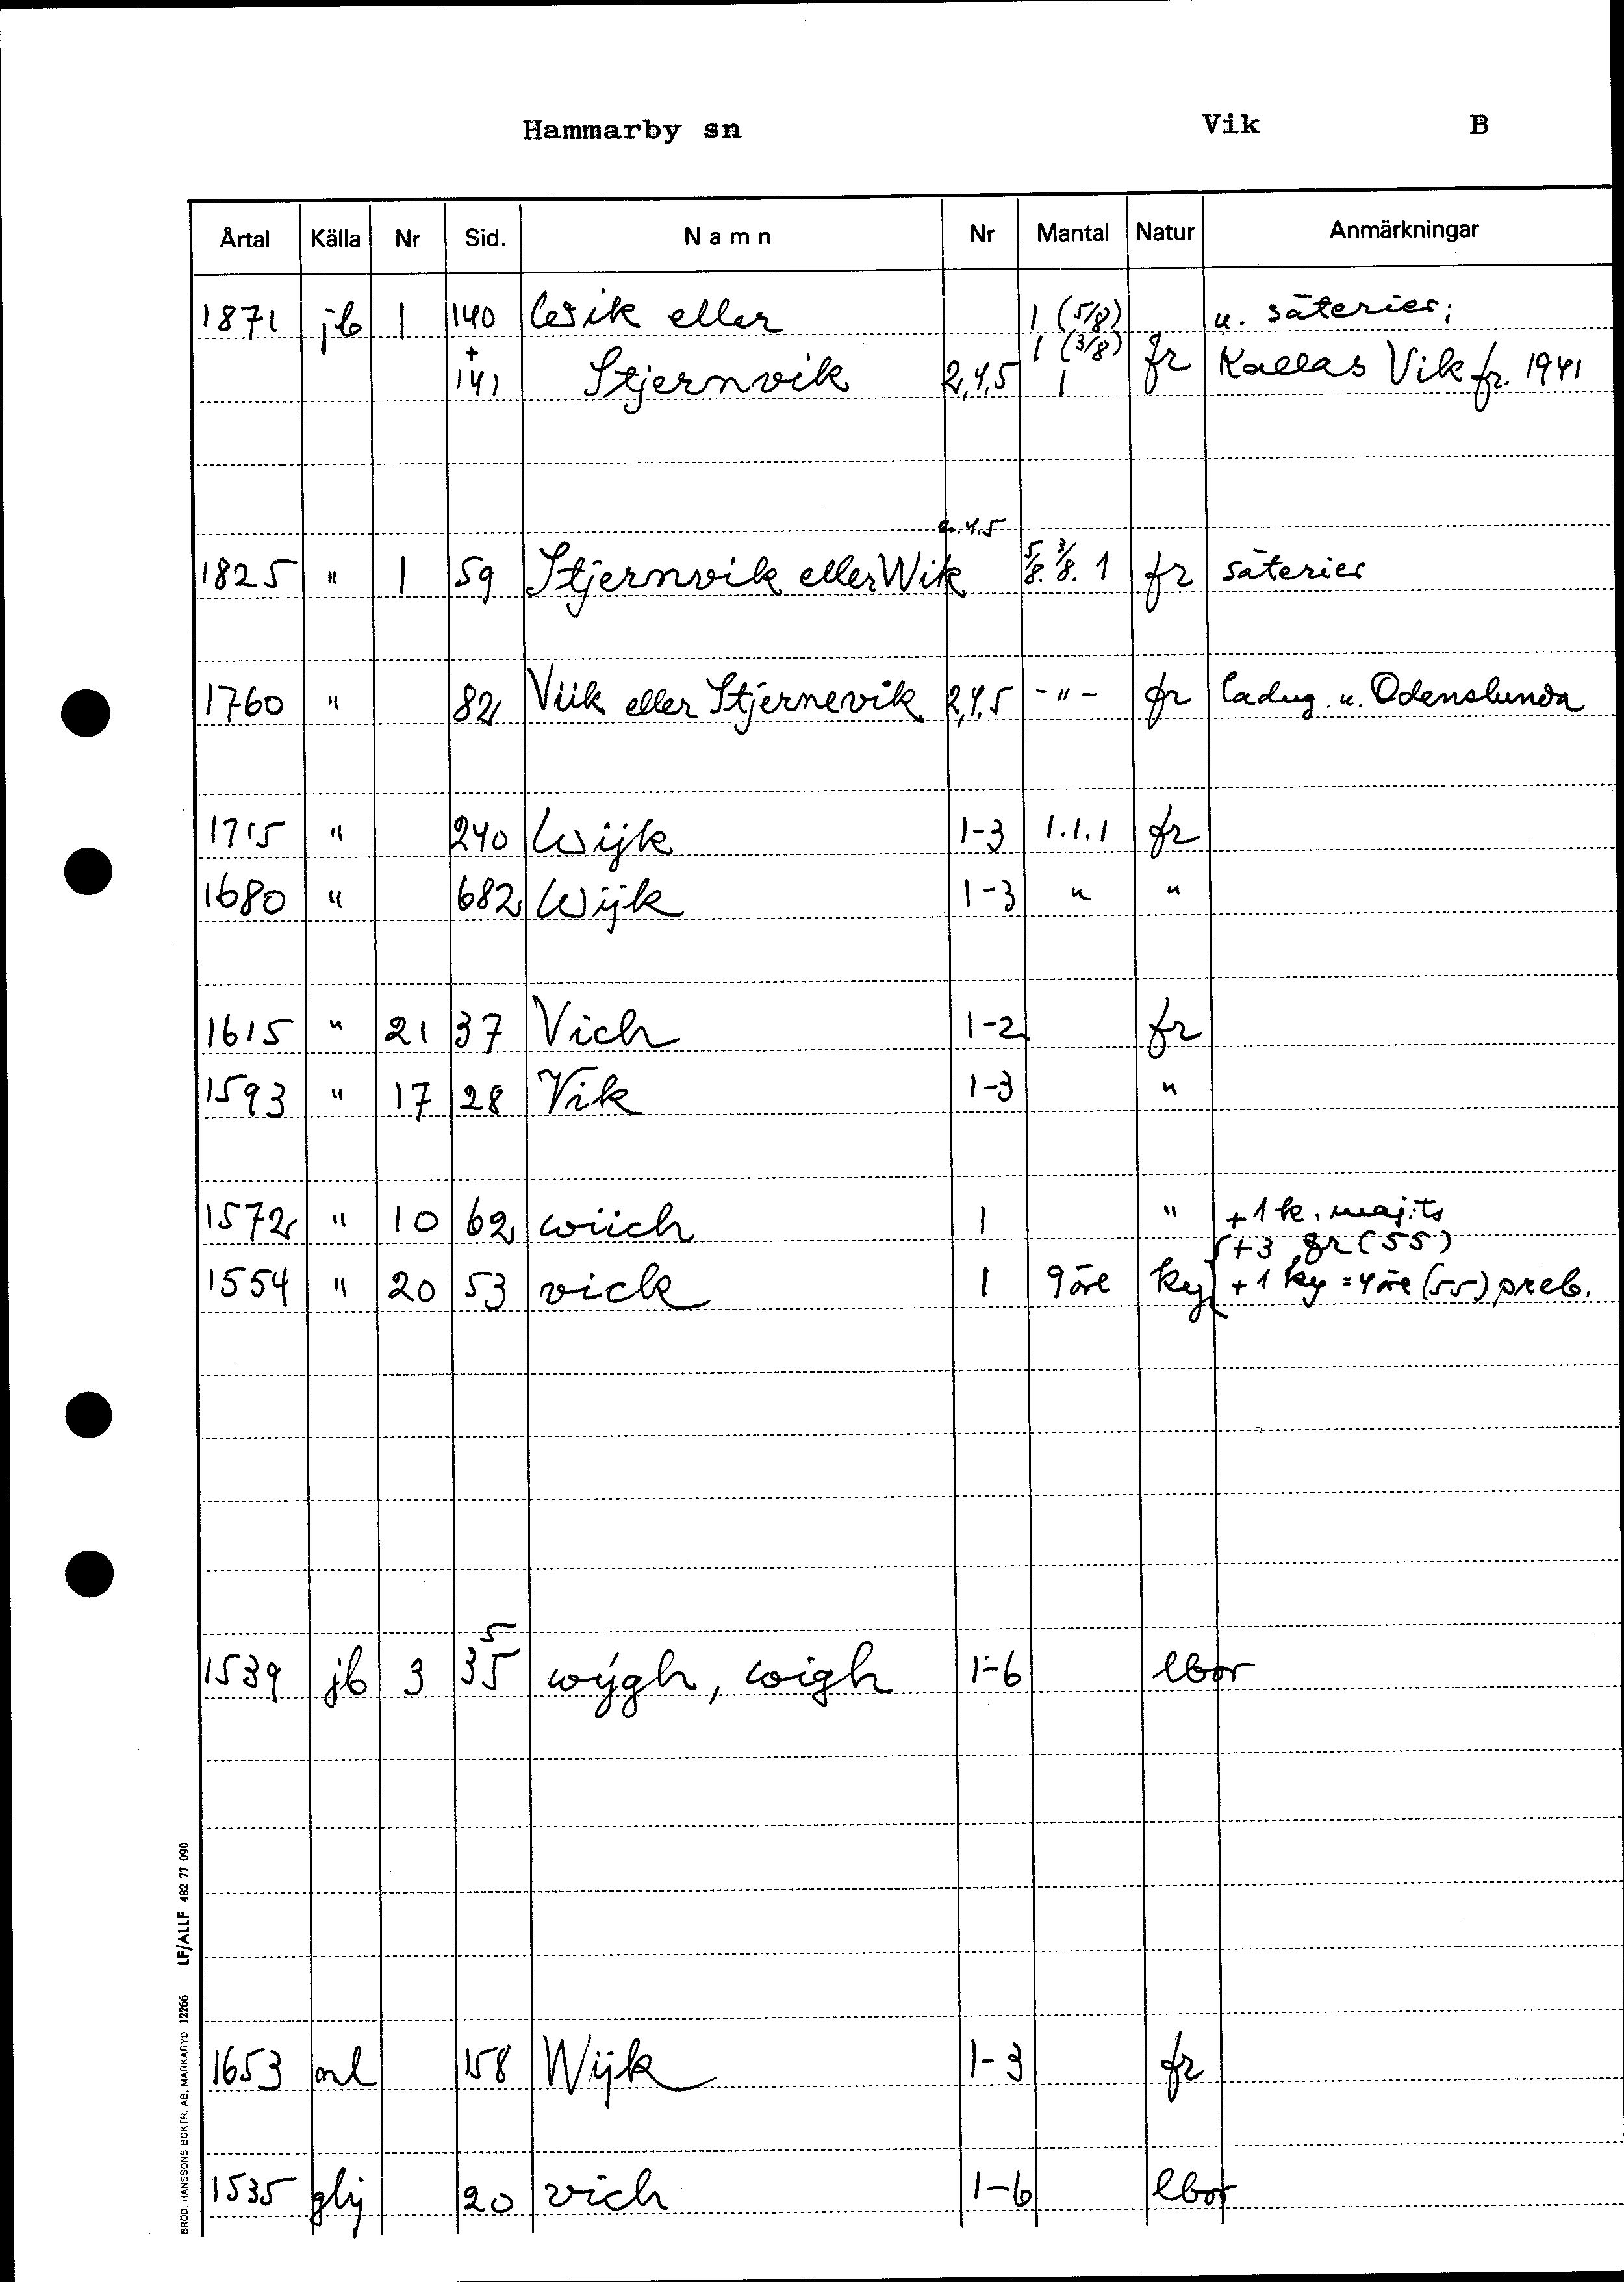 Hammarby sn Vik B
Årtal Källa Nr Sid. Namn Nr Mantal Natur Anmärkningar
1871 jb 1 140 Wik eller 1 (5/8) u. säterier;
+ 141 Stjernvik 2,4,5 1 (3/8) 1 fr Kallas Vik fr. 1941
2.4.5
1825 " 1 59 Stjernvik eller Wik 5/8. 3/8. 1 fr säterier
1760 " 82 Viik eller Stjernevik 2,4,5 -"- fr ladug. u. Odenslunda
1715 " 240 Wijk 1-3 1.1.1 fr
1680 " 682 Wijk 1-3 " "
1615 " 21 37 Vich 1-2 fr
1593 " 17 28 Vik 1-3 "
1572 " 10 62 wiich 1 " +1 k. maj:ts
+3 fr (55)
1554 " 20 53 vick 1 9 öre ky +1 ky = 4 öre (55) preb.
5
1539 jb 3 35 wÿgh, wigh 1-6 lbor
1653 ml 158 Wijk 1-3 fr
1535 glij 20 vich 1-6 lbor
BRÖD. HANSSONS BOKTR. AB, MARKARYD 12266 LF/ALLF 482 77 090